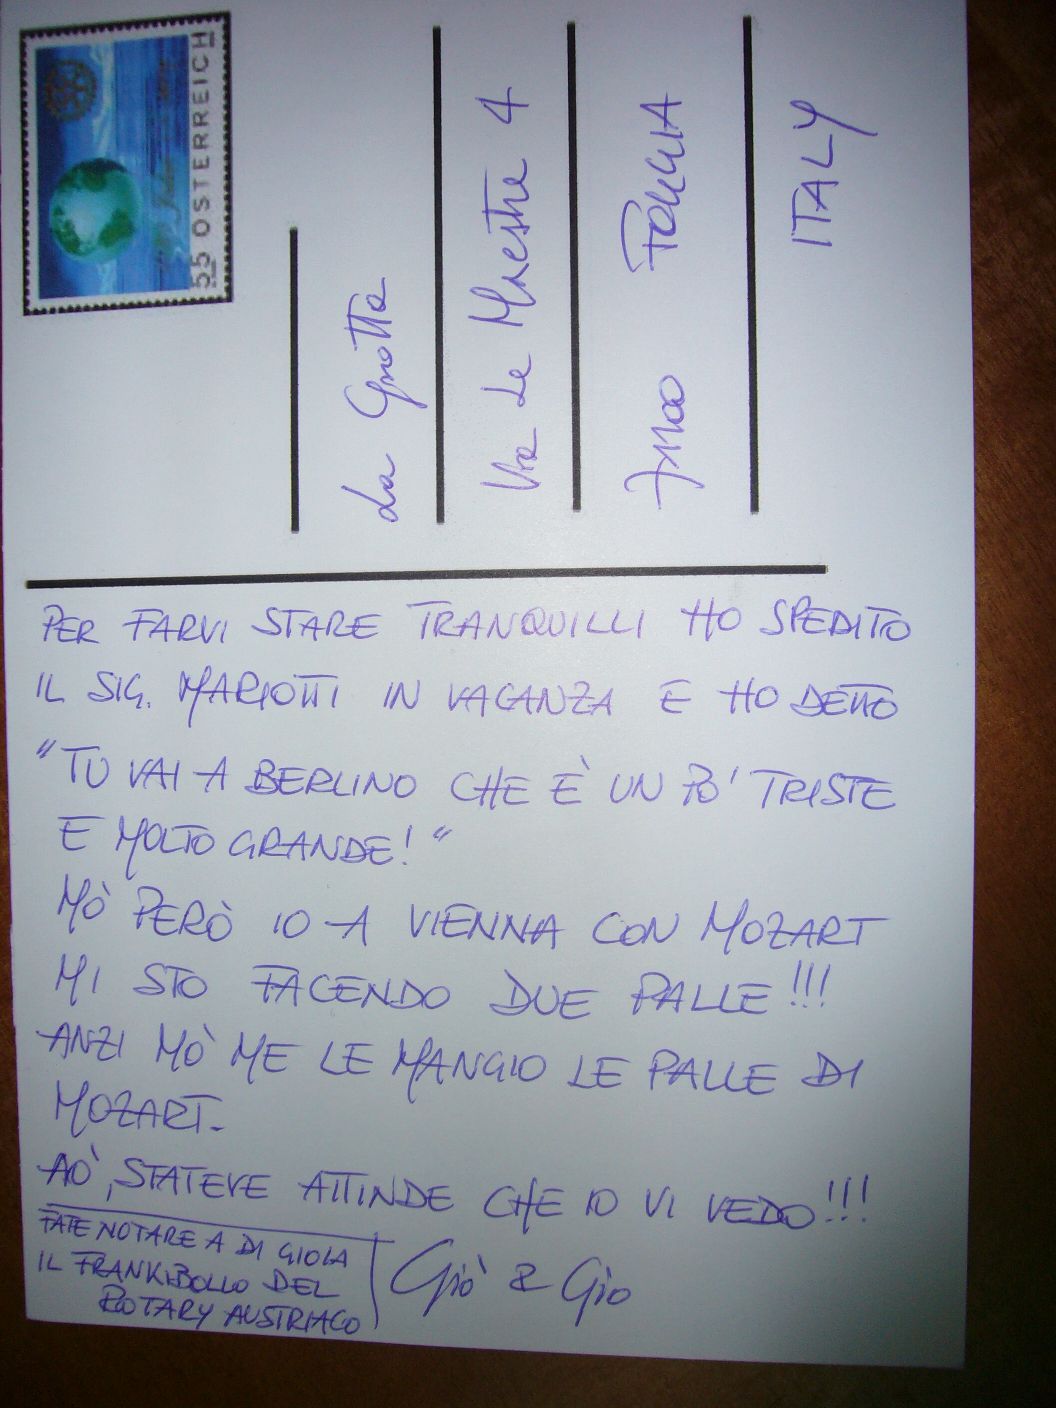 55 ÖSTERREICH
La Grotta
Via Le Maestre 4
71100 FOGGIA
ITALY
PER FARVI STARE TRANQUILLI HO SPEDITO
IL SIG. MARIOTTI IN VACANZA E HO DETTO
"TU VAI A BERLINO CHE È UN PO' TRISTE
E MOLTO GRANDE!"
MÒ PERÒ IO A VIENNA CON MOZART
MI STO FACENDO DUE PALLE!!!
ANZI MÒ ME LE MANGIO LE PALLE DI
MOZART.
AÒ, STATEVE ATTINDE CHE IO VI VEDO!!!
FATE NOTARE A DI GIOIA
IL FRANKIBOLLO DEL
ROTARY AUSTRIACO
Giò & Gio